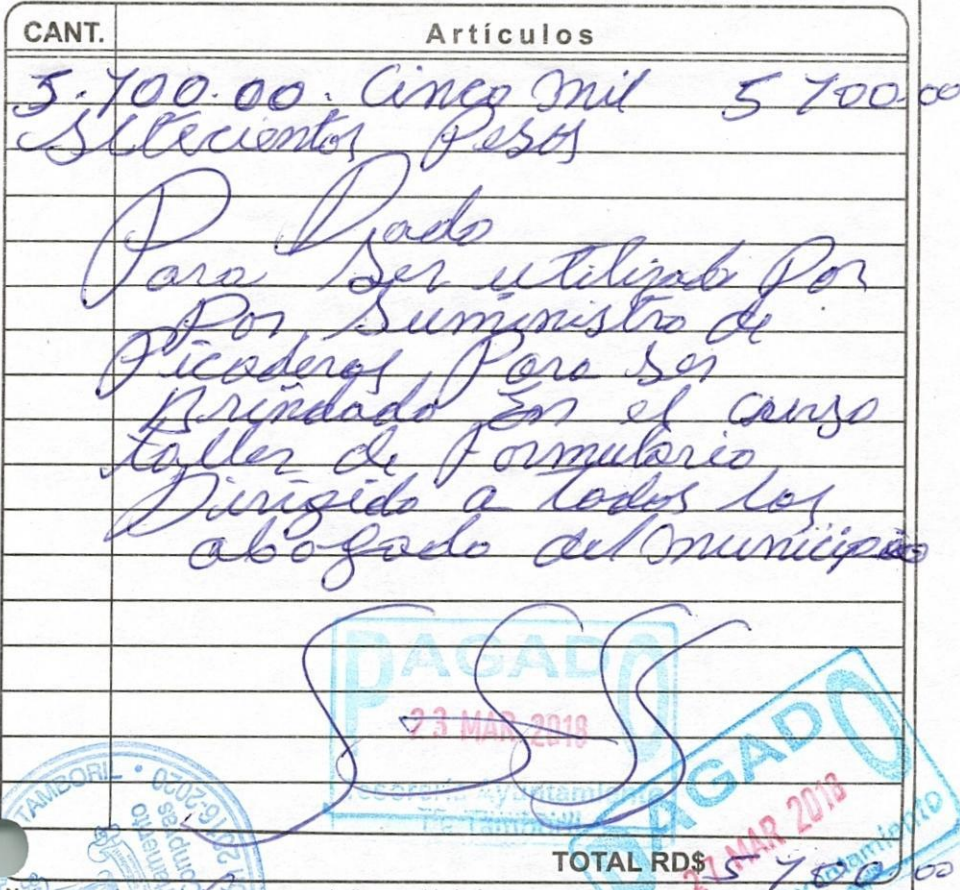 CANT. Artículos
5.700.00. Cinco Mil 5 700.00
Setecientos Pesos
Pado
Para Ser utilizado Por
Por Suministro de
Picaderas Para Ser
Brindado En el curso
taller de Formulario
Dirigido a todos los
abogado del municipio
PAGADO
23 MAR 2018
Tesorería Ayuntamiento
Tamboril
PAGADO
MAR 2018
Ayuntamiento
TAMBORIL • 2016-2020
Departamento
Compras
TOTAL RD$ 5 700.00